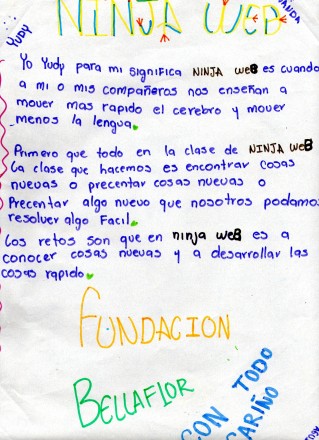 NINJA WEB
YUDY
Yo Yudy para mi significa NINJA weB es cuando
a mi o mis compañeros nos enseñan a
mover mas rapido el cerebro y mover
menos la lengua.
Primero que todo en la clase de NINJA weB
La clase que hacemos es encontrar cosas
nuevas o precentar cosas nuevas o
Precentar algo nuevo que nosotros podamos
resolver algo Facil.
Los retos son que en ninja weB es a
conocer cosas nuevas y a desarrollar las
cosas rapido.
FUNDACION
BELLAFLOR
CON TODO
CARIÑO